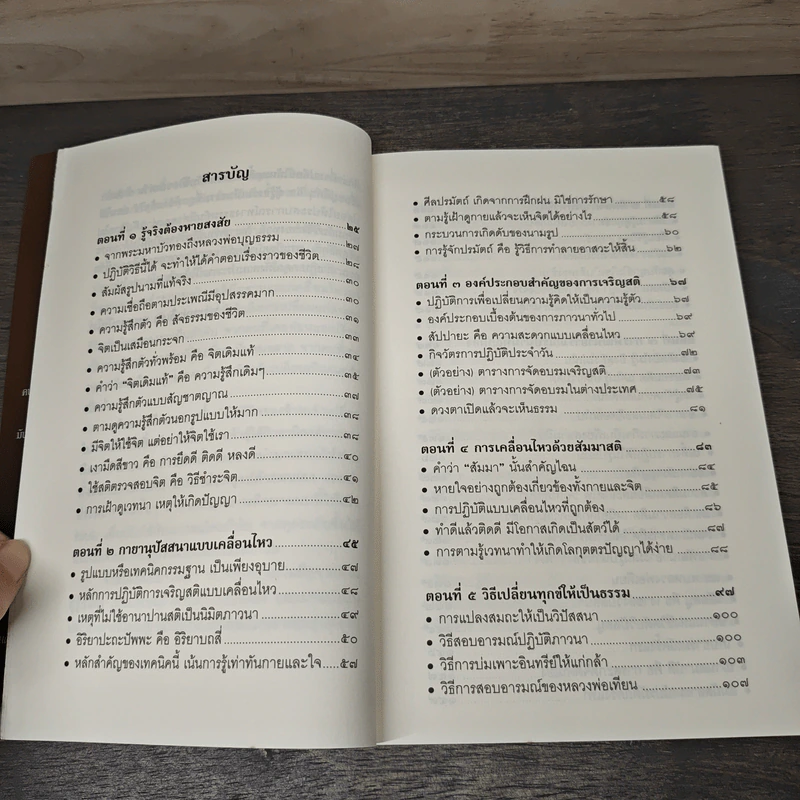 สารบัญ
ตอนที่ ๑ รู้จริงต้องหายสงสัย ๒๕
• จากพระมหาบัวทองถึงหลวงพ่อบุญธรรม ๒๗
• ปฏิบัติวิธีนี้ได้ จะทำให้ได้คำตอบเรื่องราวของชีวิต ๒๘
• สัมผัสรูปนามที่แท้จริง ๓๐
• ความเชื่อถือตามประเพณีมีอุปสรรคมาก ๓๐
• ความรู้สึกตัว คือ สัจธรรมของชีวิต ๓๑
• จิตเป็นเสมือนกระจก ๓๑
• ความรู้สึกตัวทั่วพร้อม คือ จิตเดิมแท้ ๓๔
• คำว่า “จิตเดิมแท้” คือ ความรู้สึกเดิมๆ ๓๕
• ความรู้สึกตัวแบบสัญชาตญาณ ๓๗
• ตามดูความรู้สึกตัวนอกรูปแบบให้มาก ๓๘
• มีจิตให้ใช้จิต แต่อย่าให้จิตใช้เรา ๓๘
• เงามืดสีขาว คือ การยึดดี ติดดี หลงดี ๔๐
• ใช้สติตรวจสอบจิต คือ วิธีชำระจิต ๔๑
• การเฝ้าดูเวทนา เหตุให้เกิดปัญญา ๔๒
ตอนที่ ๒ กายานุปัสสนาแบบเคลื่อนไหว ๔๕
• รูปแบบหรือเทคนิคกรรมฐาน เป็นเพียงอุบาย ๔๗
• หลักการปฏิบัติการเจริญสติแบบเคลื่อนไหว ๔๘
• เหตุที่ไม่ใช้อานาปานสติเป็นนิมิตภาวนา ๔๙
• อิริยาปะถะปัพพะ คือ อิริยาบถสี่ ๕๐
• หลักสำคัญของเทคนิคนี้ เน้นการรู้เท่าทันกายและใจ ๕๗
• ศีลปรมัตถ์ เกิดจากการฝึกฝน มิใช่การรักษา ๕๘
• ตามรู้เฝ้าดูกายแล้วจะเห็นจิตได้อย่างไร ๕๘
• กระบวนการเกิดดับของนามรูป ๖๐
• การรู้จักปรมัตถ์ คือ รู้วิธีการทำลายอาสวะให้สิ้น ๖๒
ตอนที่ ๓ องค์ประกอบสำคัญของการเจริญสติ ๖๗
• ปฏิบัติการเพื่อเปลี่ยนความรู้คิดให้เป็นความรู้ตัว ๖๗
• องค์ประกอบเบื้องต้นของการภาวนาทั่วไป ๖๙
• สัปปายะ คือ ความสะดวกแบบเคลื่อนไหว ๖๙
• กิจวัตรการปฏิบัติประจำวัน ๗๒
• (ตัวอย่าง) ตารางการจัดอบรมเจริญสติ ๗๓
• (ตัวอย่าง) ตารางการจัดอบรมในต่างประเทศ ๗๕
• ดวงตาเปิดแล้วจะเห็นธรรม ๘๑
ตอนที่ ๔ การเคลื่อนไหวด้วยสัมมาสติ ๘๓
• คำว่า “สัมมา” นั้นสำคัญไฉน ๘๔
• หายใจอย่างถูกต้องเกี่ยวข้องทั้งกายและจิต ๘๕
• การปฏิบัติแบบเคลื่อนไหวที่ถูกต้อง ๘๖
• ทำดีแล้วติดดี มีโอกาสเกิดเป็นสัตว์ได้ ๘๗
• การตามรู้เวทนาทำให้เกิดโลกุตตรปัญญาได้ง่าย ๘๘
ตอนที่ ๕ วิธีเปลี่ยนทุกข์ให้เป็นธรรม ๙๗
• การแปลงสมถะให้เป็นวิปัสสนา ๑๐๐
• วิธีสอบอารมณ์ปฏิบัติภาวนา ๑๐๐
• วิธีการบ่มเพาะอินทรีย์ให้แก่กล้า ๑๐๓
• วิธีการสอบอารมณ์ของหลวงพ่อเทียน ๑๐๗